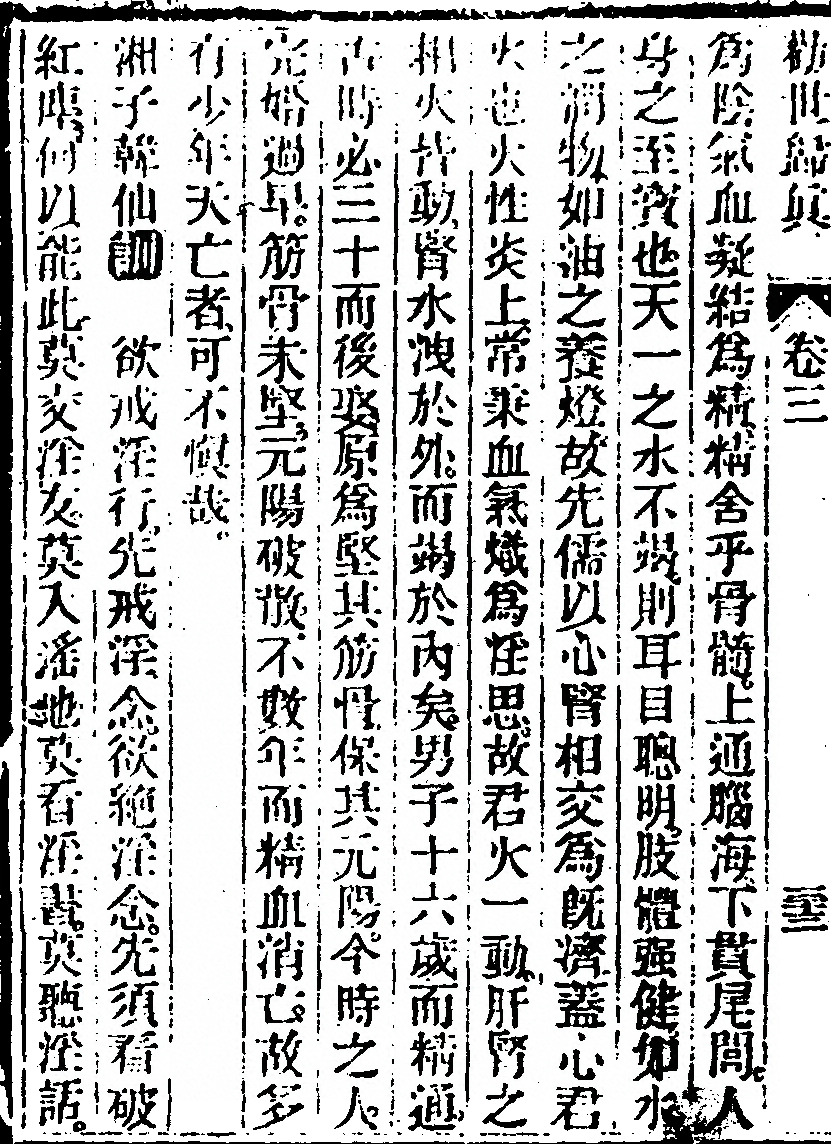 勸世歸真 卷三 三三
為陰氣血凝結為精精舍乎骨髓上通腦海下貫尾閭人
身之至寶也天一之水不竭則耳目聰明肢體强健如水
之潤物如油之養燈故先儒以心腎相交為既濟蓋心君
火也火性炎上常乘血氣熾為淫思故君火一動肝腎之
相火皆動腎水洩於外而竭於內矣男子十六歲而精通
古時必三十而後娶原為堅其筋骨保其元陽今時之人
完婚過早筋骨未堅元陽破散不數年而精血消亡故多
有少年夭亡者可不慎哉
湘子韓仙訓 欲戒淫行先戒淫念欲絕淫念先須看破
紅塵何以能此莫交淫友莫入淫地莫看淫書莫聽淫話